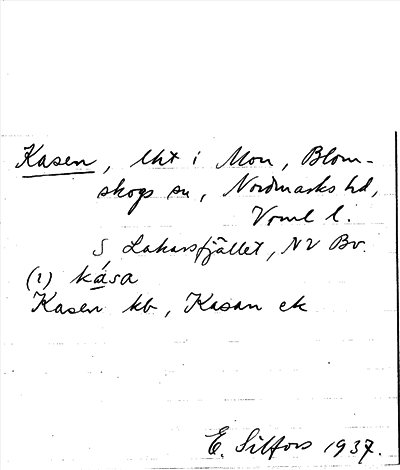 Kasen, lht i Mon, Blom-
skogs sn, Nordmarks hd,
Vrml l.
S Lakarsfjället, NV Bv.
(i) kása
Kasen kb, Kasan ek
E. Silfors 1937.